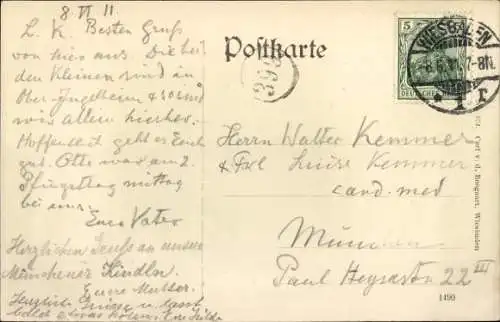 8 VI 11
L. K. Besten Gruß
von hier aus. Die bei
den Kleinen sind in
Ober-Ingelheim & so sind
wir allein hierher.
Hoffentlich geht es Euch
gut. Otto war am 2.
Pfingsttag mittag
bei uns.
Euer Vater
Herzlichen Gruß an unsere
Münchener Kindln.
Eure Mutter.
Herzliche Grüße u. lasst
bald etwas hören. Eure Hilde
Postkarte
5
DEUTSCHES
WIESBADEN
8.6.11.7-8N.
* 1 r
Herrn Walter Kemmer
& Frl Luise Kemmer
cand. med
München
Paul Heysestr 22 III
1490
Carl v. d. Boogaart, Wiesbaden